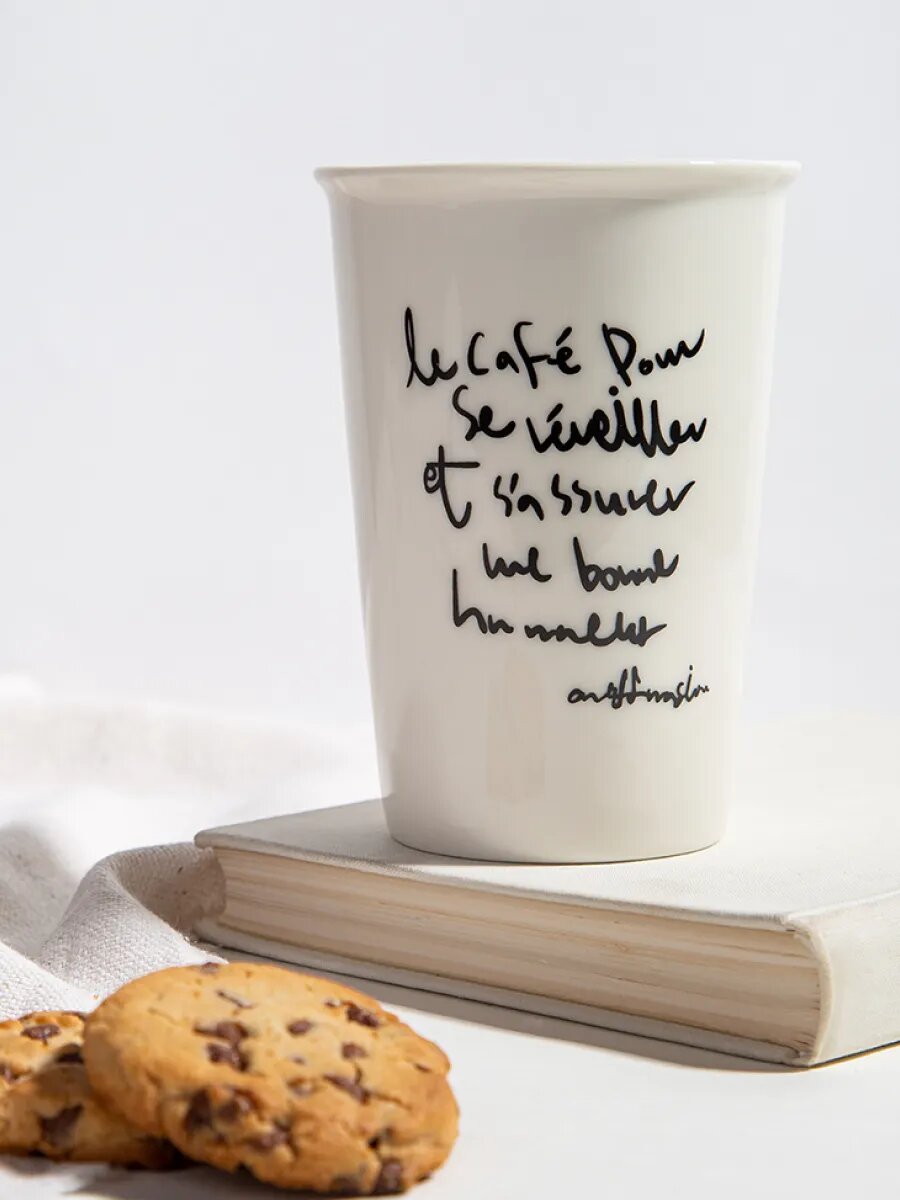 le café pour
se réveiller
et s'assurer
une bonne
humeur